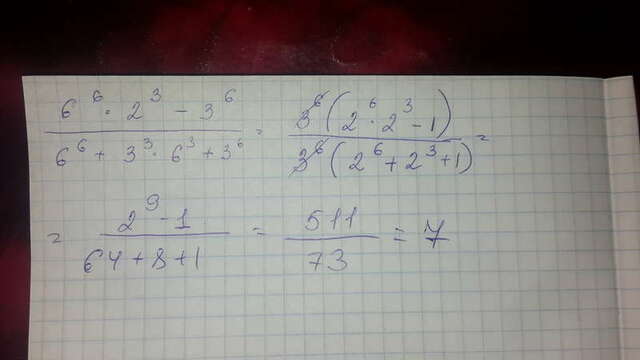 6⁶ · 2³ − 3⁶ / 6⁶ + 3³ · 6³ + 3⁶ = 3⁶(2⁶ · 2³ − 1) / 3⁶(2⁶ + 2³ + 1) =
= 2⁹ − 1 / 64 + 8 + 1 = 511 / 73 = 7